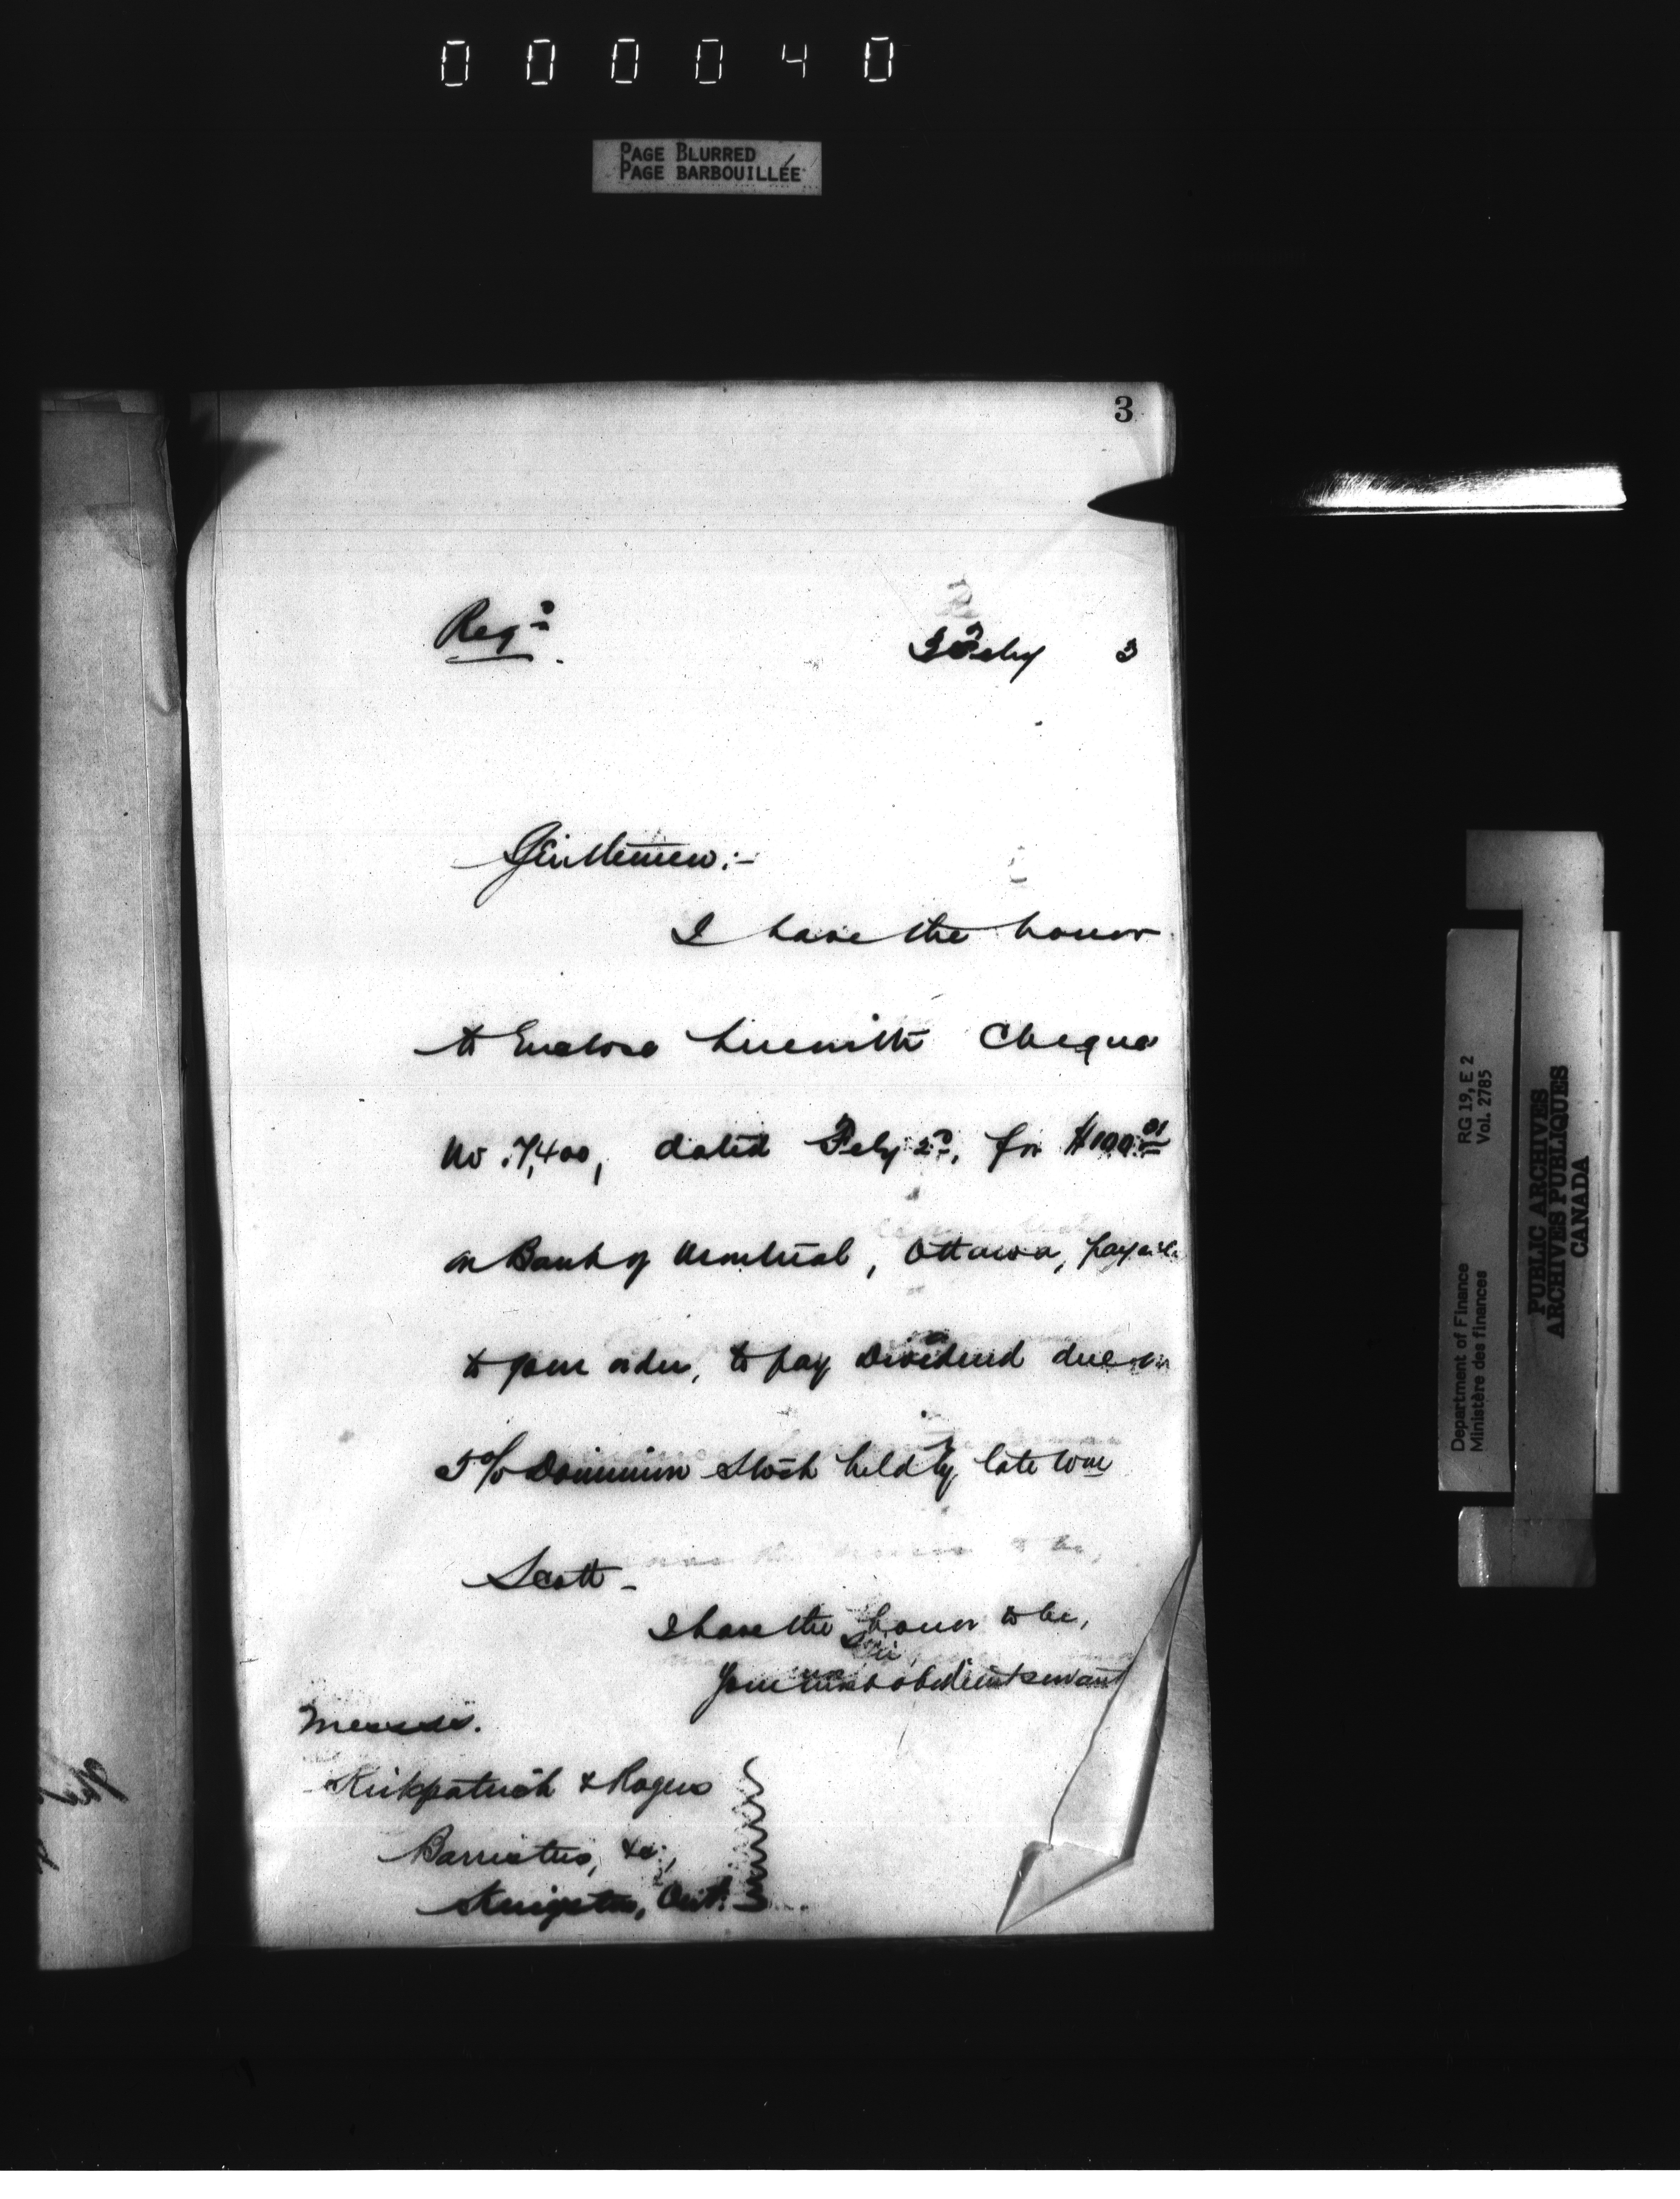 000040
PAGE BLURRED
PAGE BARBOUILLÉE
3
Regd.
3 Feby 3
Gentlemen:-
I have the honor
to Enclose herewith Cheque
No. 7,400, dated Feby 2d, for $100.01
on Bank of Montreal, Ottawa, payable
to your order, to pay Dividend due on
5% Dominion Stock held by late Wm
Scott-
I have the honor to be,
Sir,
Your most obedient servant
Messrs.
Kirkpatrick & Rogers
Barristers, &c.,
Kingston, Ont.
Department of Finance
Ministère des finances
RG 19, E 2
Vol. 2785
PUBLIC ARCHIVES
ARCHIVES PUBLIQUES
CANADA